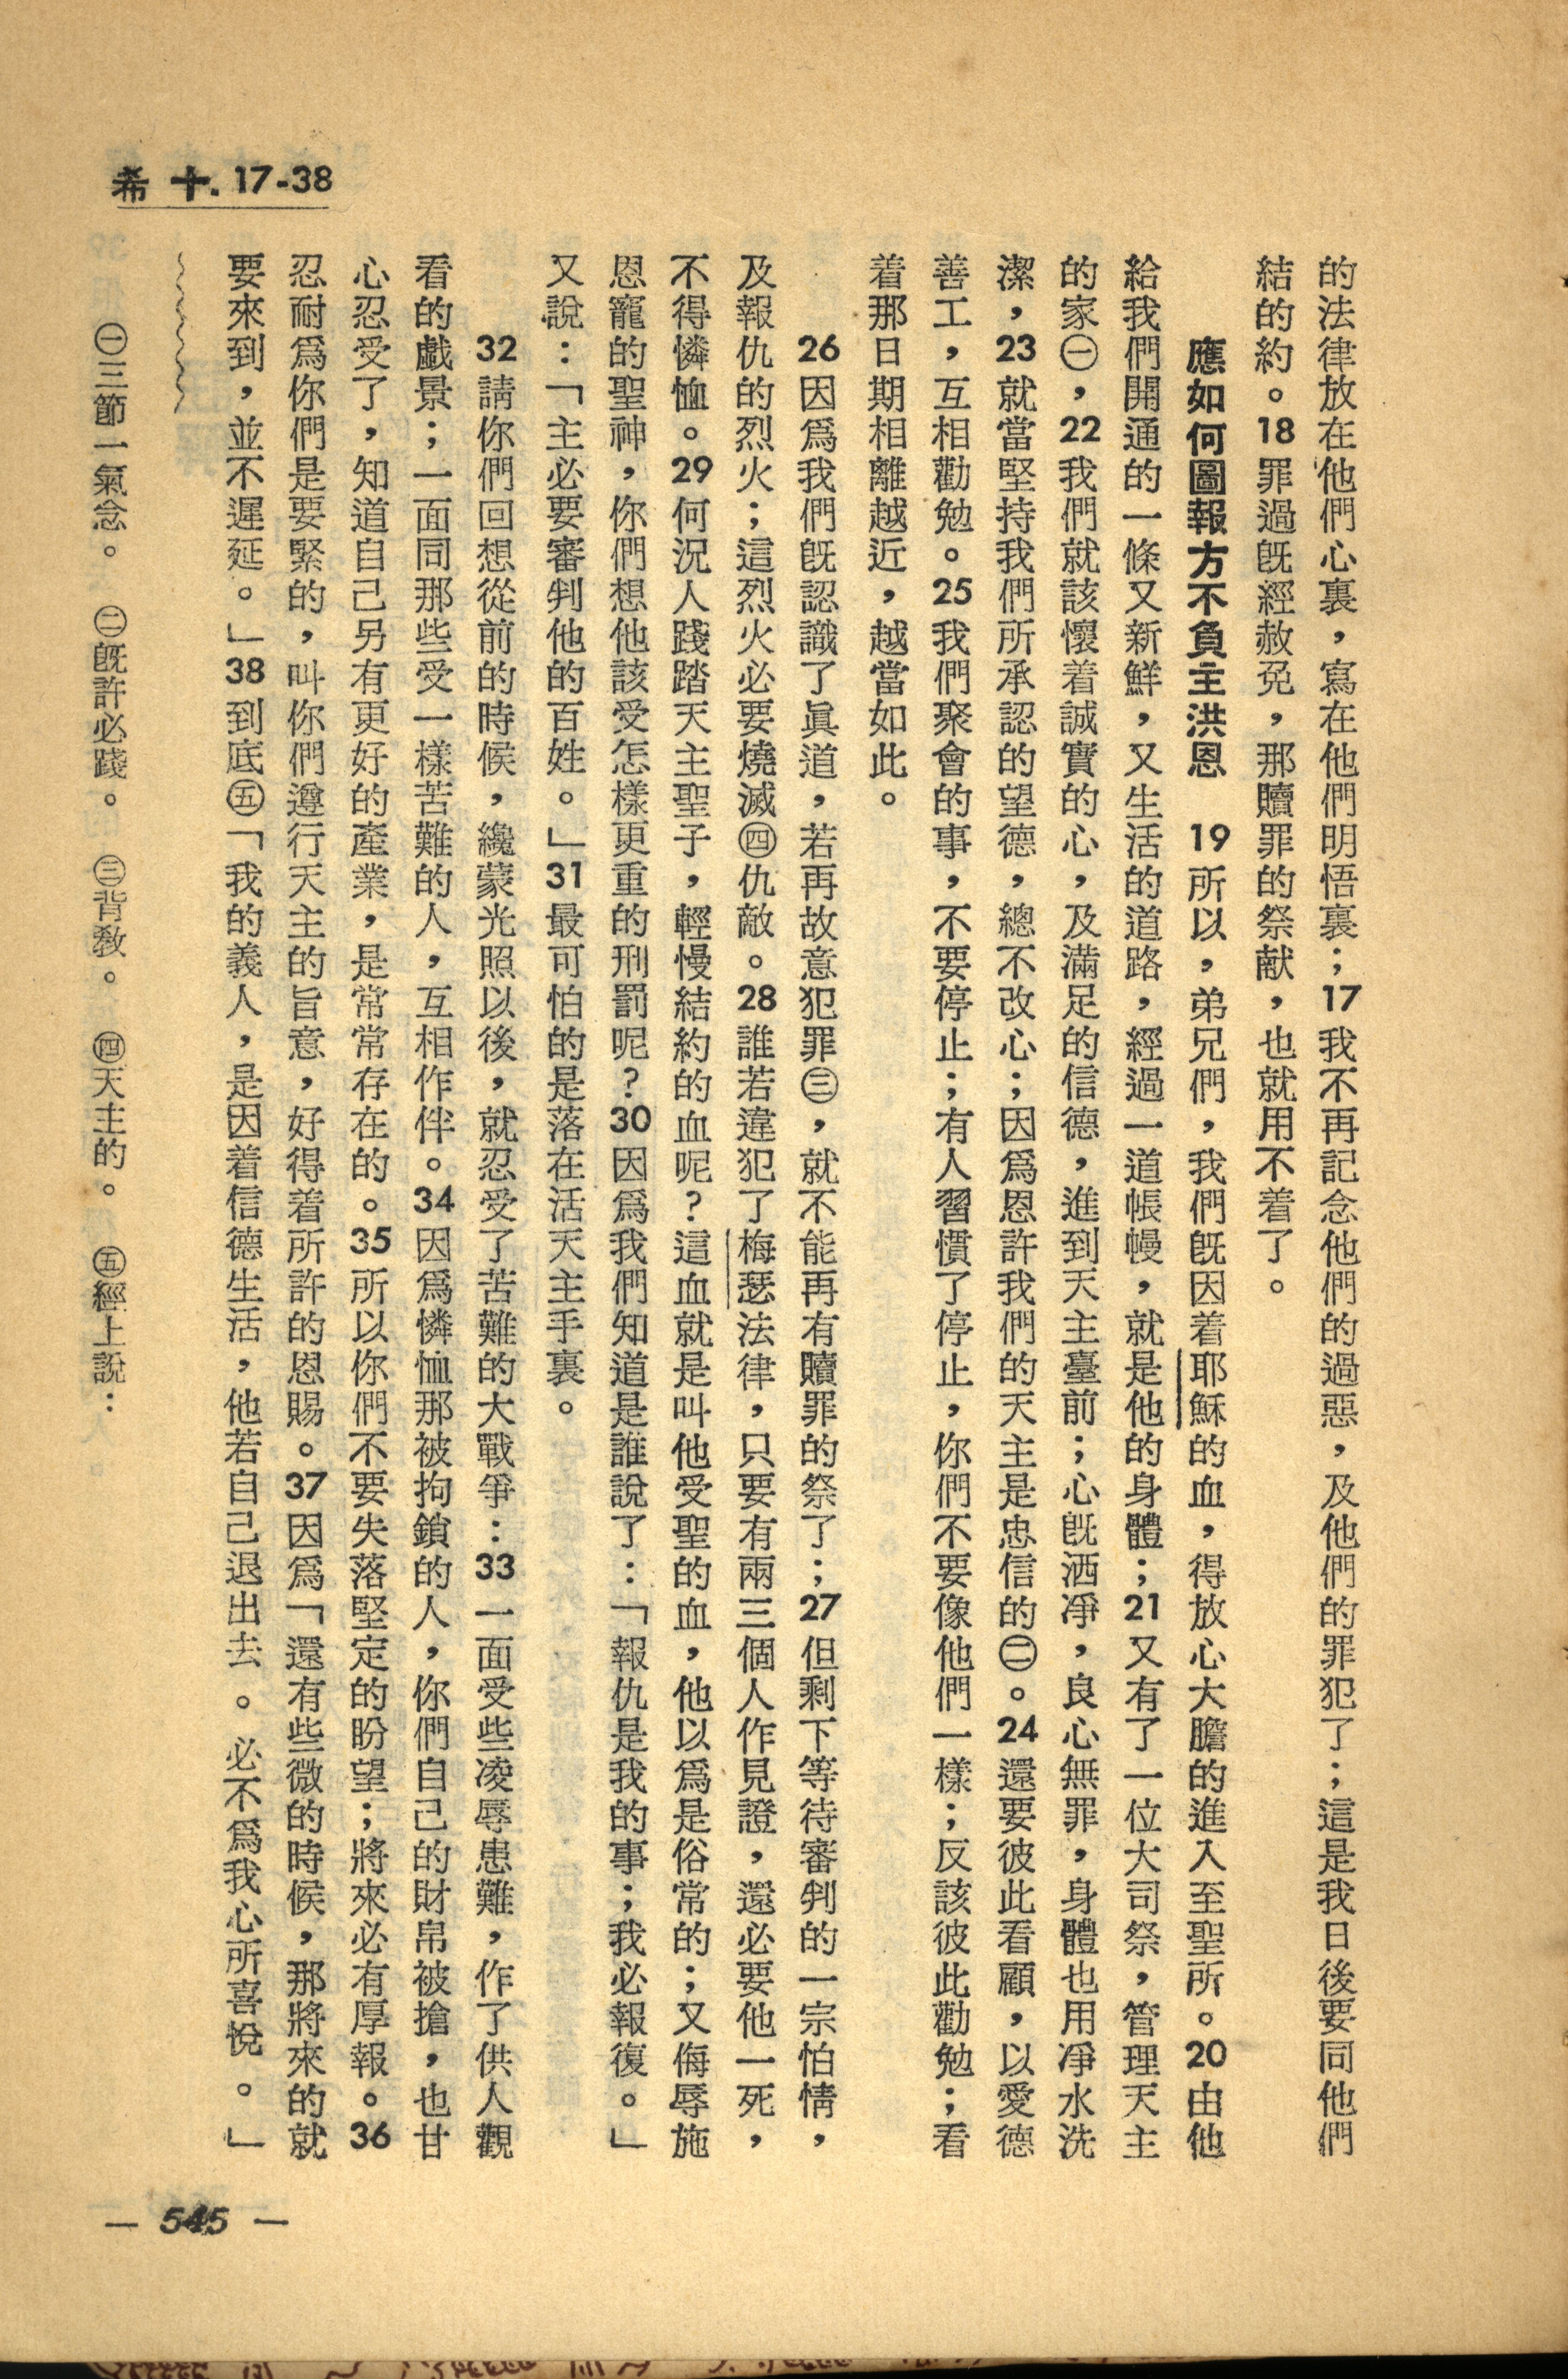 希 十. 17-38
的法律放在他們心裏，寫在他們明悟裏；17我不再記念他們的過惡，及他們的罪犯了；這是我日後要同他們
結的約。18罪過旣經赦免，那贖罪的祭献，也就用不着了。
應如何圖報方不負主洪恩　19所以，弟兄們，我們旣因着耶穌的血，得放心大膽的進入至聖所。20由他
給我們開通的一條又新鮮，又生活的道路，經過一道帳幔，就是他的身體；21又有了一位大司祭，管理天主
的家㊀，22我們就該懷着誠實的心，及滿足的信德，進到天主臺前；心旣洒凈，良心無罪，身體也用凈水洗
潔，23就當堅持我們所承認的望德，總不改心；因爲恩許我們的天主是忠信的㊁。24還要彼此看顧，以愛德
善工，互相勸勉。25我們聚會的事，不要停止；有人習慣了停止，你們不要像他們一樣；反該彼此勸勉；看
着那日期相離越近，越當如此。
26因爲我們旣認識了眞道，若再故意犯罪㊂，就不能再有贖罪的祭了；27但剩下等待審判的一宗怕情，
及報仇的烈火；這烈火必要燒滅㊃仇敵。28誰若違犯了梅瑟法律，只要有兩三個人作見證，還必要他一死，
不得憐恤。29何況人踐踏天主聖子，輕慢結約的血呢？這血就是叫他受聖的血，他以爲是俗常的；又侮辱施
恩寵的聖神，你們想他該受怎樣更重的刑罰呢？30因爲我們知道是誰說了：「報仇是我的事；我必報復。」
又說：「主必要審判他的百姓。」31最可怕的是落在活天主手裏。
32請你們回想從前的時候，纔蒙光照以後，就忍受了苦難的大戰爭：33一面受些凌辱患難，作了供人觀
看的戱景；一面同那些受一樣苦難的人，互相作伴。34因爲憐恤那被拘鎖的人，你們自己的財帛被搶，也甘
心忍受了，知道自己另有更好的產業，是常常存在的。35所以你們不要失落堅定的盼望；將來必有厚報。36
忍耐爲你們是要緊的，叫你們遵行天主的旨意，好得着所許的恩賜。37因爲「還有些微的時候，那將來的就
要來到，並不遲延。」38到底㊄「我的義人，是因着信德生活，他若自己退出去。必不爲我心所喜悅。」
㊀三節一氣念。　㊁旣許必踐。　㊂背敎。　㊃天主的。　㊄經上說：
— 545 —